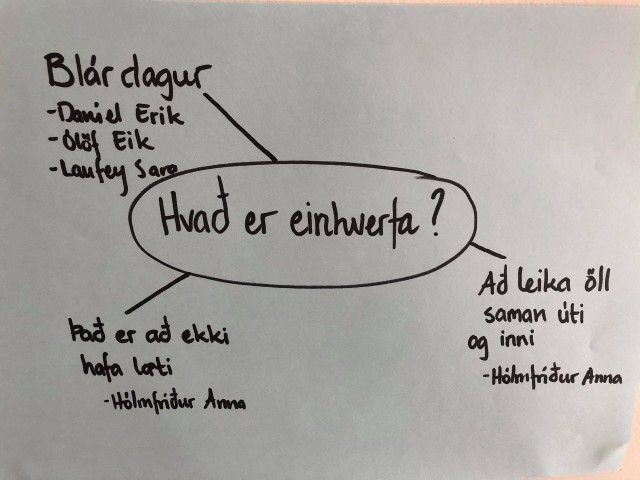 Blár dagur
-Daniel Erik
-Ólöf Eik
-Laufey Sara
Hvað er einhverfa?
Að leika öll
saman úti
og inni
-Hólmfríður Anna
Það er að ekki
hafa læti
-Hólmfríður Anna